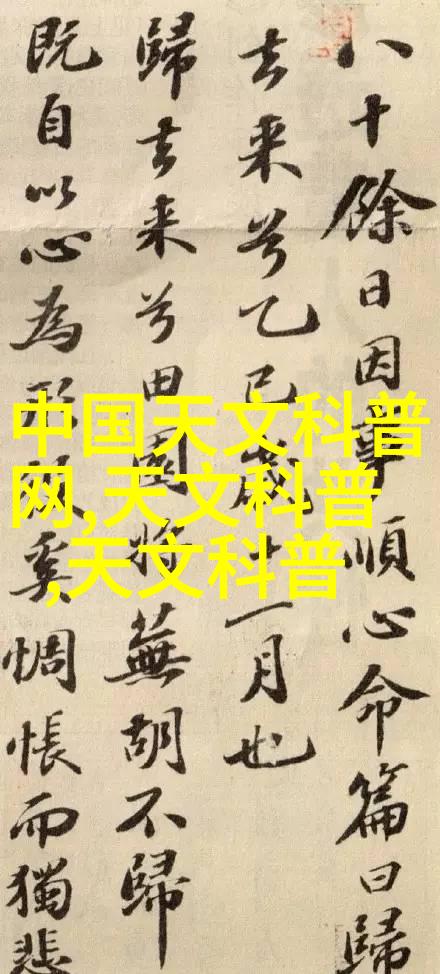 八十餘日因事順心命篇曰歸
去来兮乙巳歲十一月也
歸去来兮田園將蕪胡不歸
既自以心為形役奚惆悵而獨悲
中国天文科普
网,天文科普
,天文科普